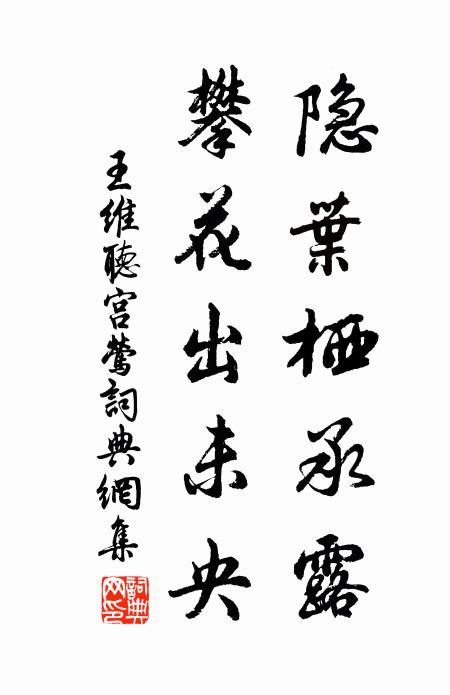 隐葉栖承露
攀花出未央
王維聽宫鶯詞典網集
詞典網印